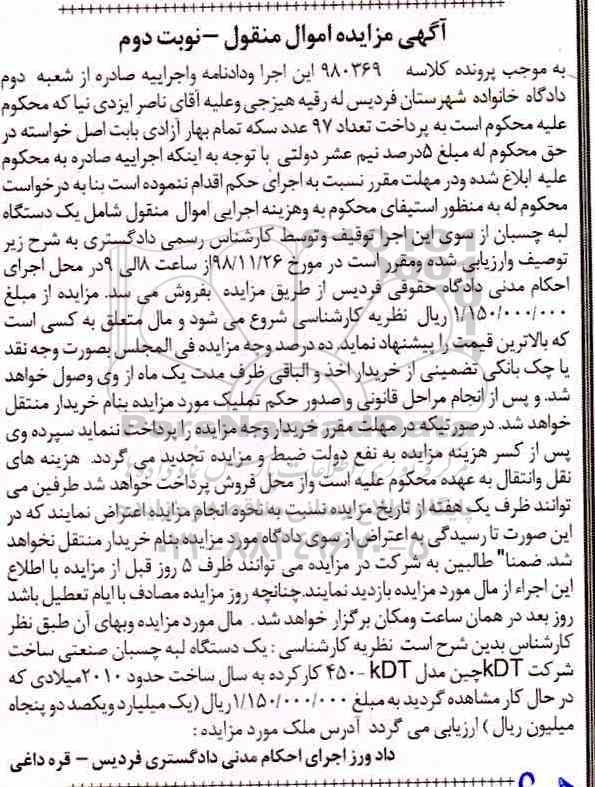 آگهی مزایده اموال منقول – نوبت دوم
به موجب پرونده کلاسه ۹۸۰۳۶۹ این اجرا ودادنامه واجراییه صادره از شعبه دوم
دادگاه خانواده شهرستان فردیس له رقیه هیزجی وعلیه آقای ناصر ایزدی نیا که محکوم
علیه محکوم است به پرداخت تعداد ۹۷ عدد سکه تمام بهار آزادی بابت اصل خواسته در
حق محکوم له مبلغ ۵درصد نیم عشر دولتی با توجه به اینکه اجراییه صادره به محکوم
علیه ابلاغ شده ودر مهلت مقرر نسبت به اجرای حکم اقدام ننموده است بنا به درخواست
محکوم له به منظور استیفای محکوم به وهزینه اجرایی اموال منقول شامل یک دستگاه
لبه چسبان از سوی این اجرا توقیف وتوسط کارشناس رسمی دادگستری به شرح زیر
توصیف وارزیابی شده ومقرر است در مورخ ۹۸/۱۱/۲۶از ساعت ۸الی ۹در محل اجرای
احکام مدنی دادگاه حقوقی فردیس از طریق مزایده بفروش می سد. مزایده از مبلغ
۱/۱۵۰/۰۰۰/۰۰۰ ریال نظریه کارشناسی شروع می شود و مال متعلق به کسی است
که بالاترین قیمت را پیشنهاد نماید. ده درصد وجه مزایده فی المجلس بصورت وجه نقد
یا چک بانکی تضمینی از خریدار اخذ و الباقی ظرف مدت یک ماه از وی وصول خواهد
شد. و پس از انجام مراحل قانونی و صدور حکم تملیک مورد مزایده بنام خریدار منتقل
خواهد شد. درصورتیکه در مهلت مقرر خریدار وجه مزایده را پرداخت ننماید سپرده وی
پس از کسر هزینه مزایده به نفع دولت ضبط و مزایده تجدید می گردد. هزینه های
نقل وانتقال به عهده محکوم علیه است واز محل فروش پرداخت خواهد شد طرفین می
توانند ظرف یک هفته از تاریخ مزایده نسبت به نحوه انجام مزایده اعتراض نمایند که در
این صورت تا رسیدگی به اعتراض از سوی دادگاه مورد مزایده بنام خریدار منتقل نخواهد
شد. ضمنا" طالبین به شرکت در مزایده می توانند ظرف ۵ روز قبل از مزایده با اطلاع
این اجراء از مال مورد مزایده بازدید نمایند.چنانچه روز مزایده مصادف با ایام تعطیل باشد
روز بعد در همان ساعت ومکان برگزار خواهد شد . مال مورد مزایده وبهای آن طبق نظر
کارشناس بدین شرح است نظریه کارشناسی : یک دستگاه لبه چسبان صنعتی ساخت
شرکت kDTچین مدل kDT -۴۵۰ کارکرده به سال ساخت حدود ۲۰۱۰میلادی که
در حال کار مشاهده گردید به مبلغ ۱/۱۵۰/۰۰۰/۰۰۰ریال (یک میلیارد ویکصد دو پنجاه
میلیون ریال ) ارزیابی می گردد آدرس ملک مورد مزایده :
داد ورز اجرای احکام مدنی دادگستری فردیس – قره داغی
ParsNamadData
۰۲۱-۸۸۳۴۹۶۷۰-۵